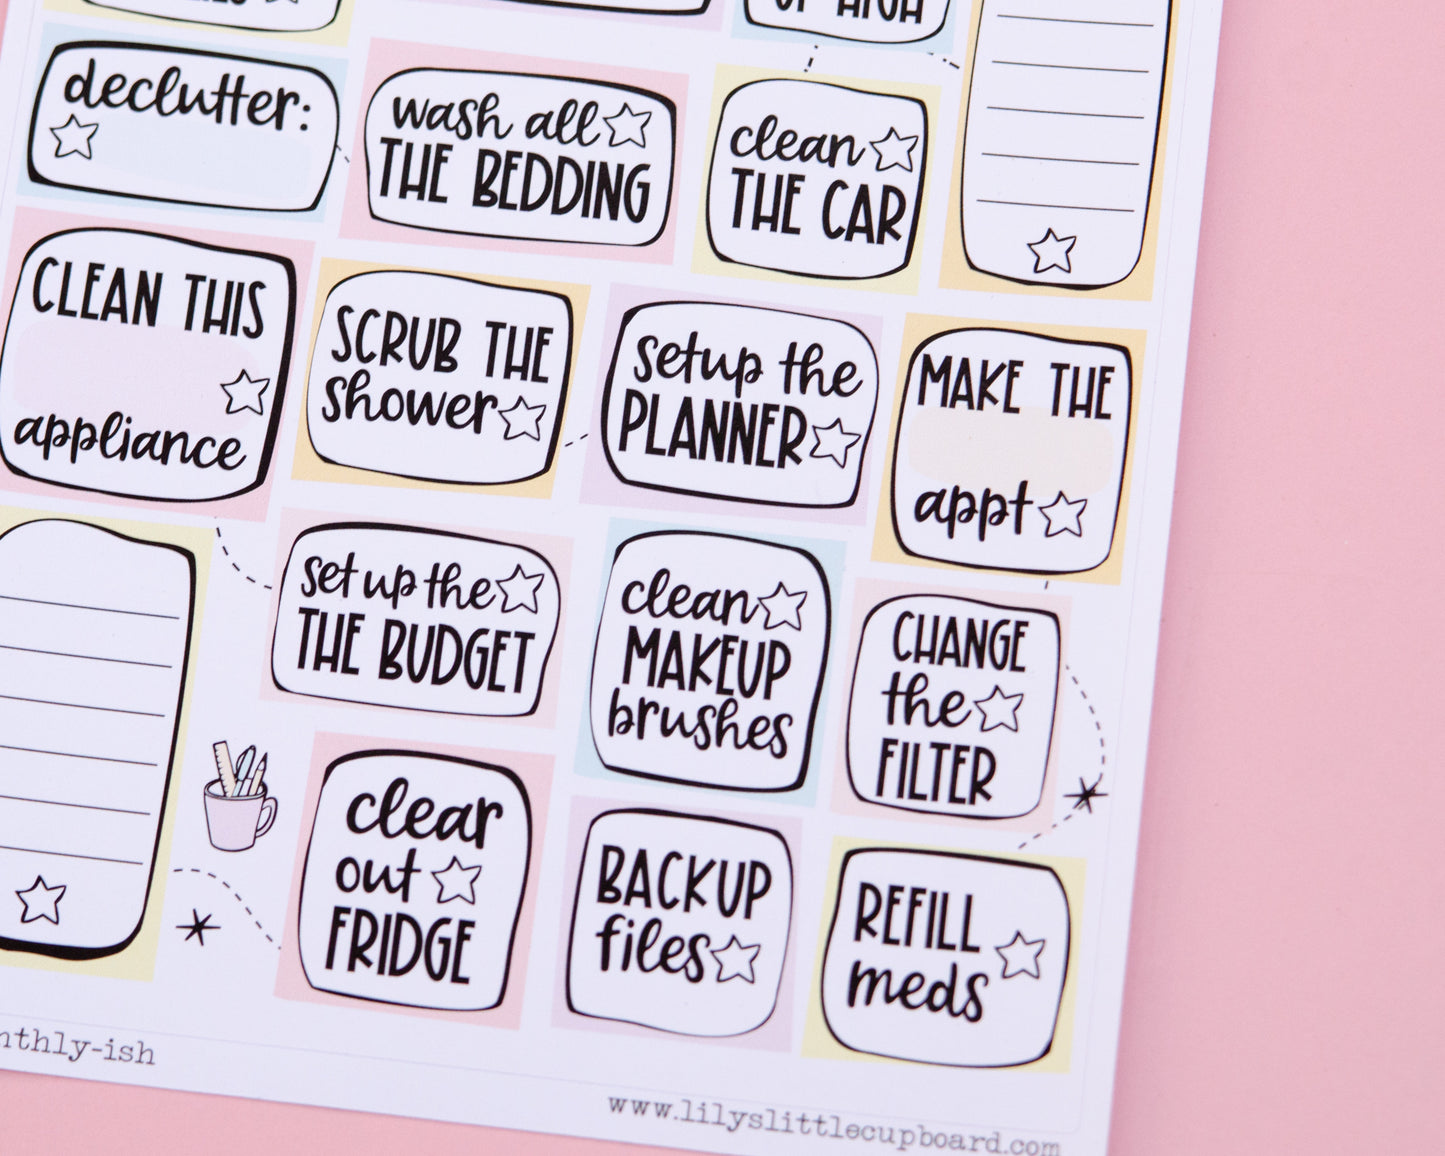 declutter:
wash all
THE BEDDING
clean
THE CAR
CLEAN THIS
appliance
SCRUB THE
shower
setup the
PLANNER
MAKE THE
appt
set up the
THE BUDGET
clean
MAKEUP
brushes
CHANGE
the
FILTER
clear
out
FRIDGE
BACKUP
files
REFILL
meds
nthly-ish
www.lilyslittlecupboard.com